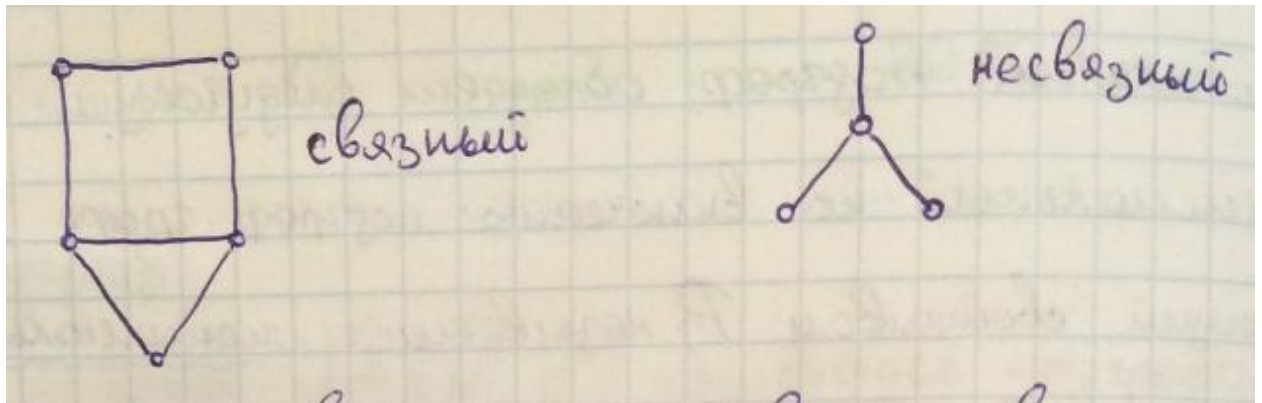 связный
несвязный